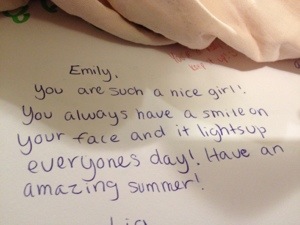 Emily,
you are such a nice girl!
You always have a smile on
your face and it lightsup
everyones day! Have an
amazing summer!